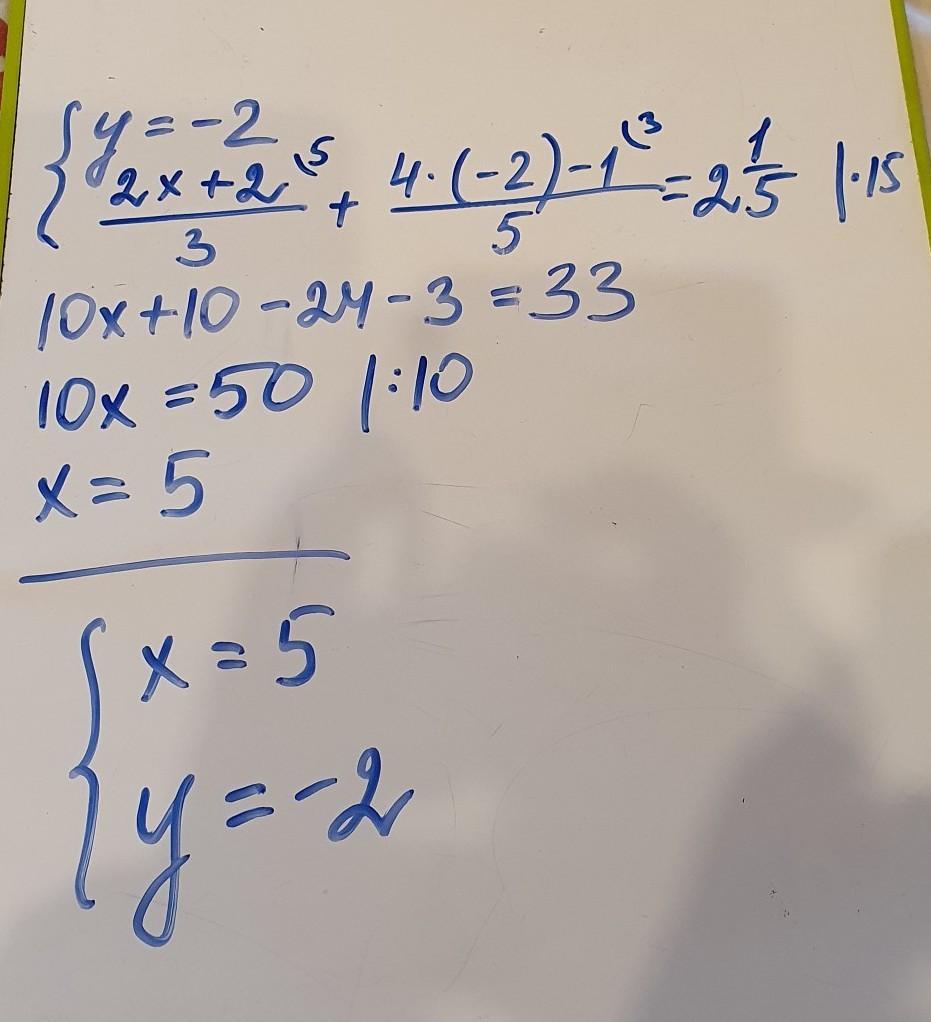 { y = -2
{ (2x+2)/3 ⁽⁵ + (4·(-2)-1)/5 ⁽³ = 2 1/5 |·15
10x+10-24-3=33
10x=50 |:10
x=5
{ x=5
{ y=-2